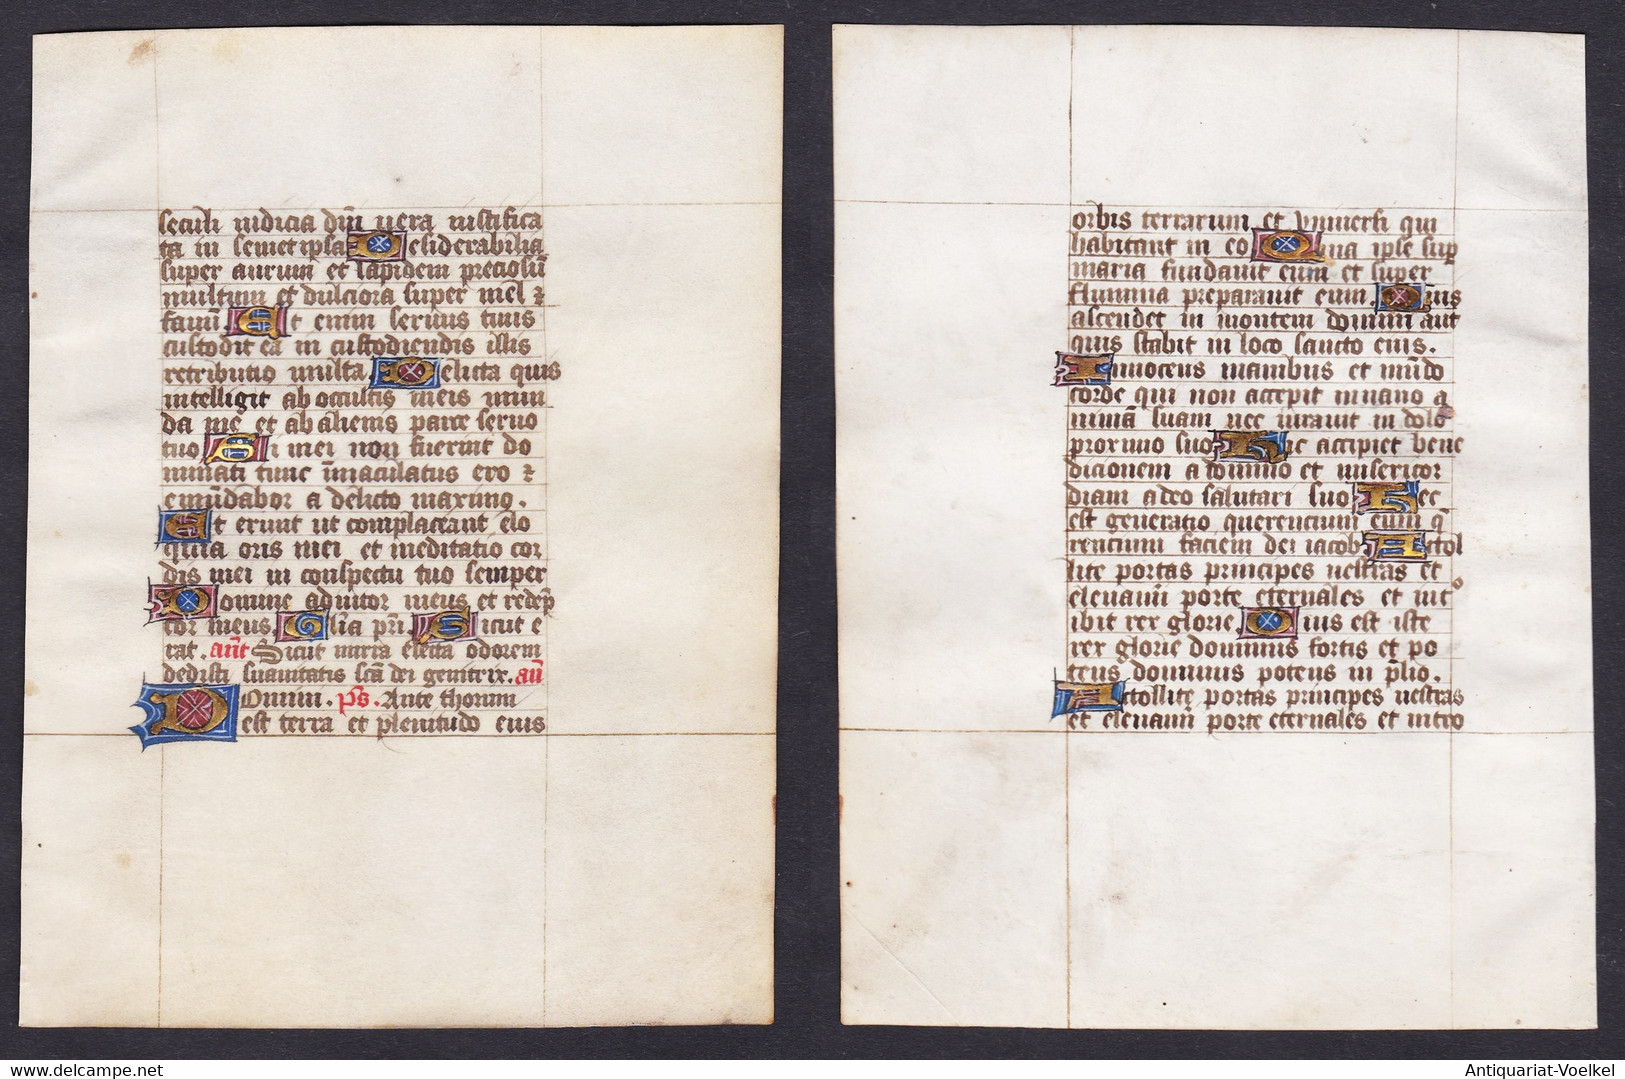 seculi iudicia dñi uera iustifica
ta in semetipsa Desiderabilia
super aurum et lapidem preciosũ
multum et dulciora super mel ⁊
fauũ Et enim seruus tuus
custodit ea in custodiendis illis
retributio multa Delicta quis
intelligit ab occultis meis mun
da me et ab alienis parce seruo
tuo Si mei non fuerint do
minati tunc ĩmaculatus ero ⁊
emũdabor a delicto maximo.
Et erunt ut complaceant elo
quia oris mei et meditatio cor
dis mei in conspectu tuo semper
Domine adiutor meus et redẽp
tor meus. Glĩa pr̃i. Sicut e
rat. añt Sicut mirra electa odorem
dedisti suauitatis scã dei genitrix. añ
Domini. ps. Ante thorum
est terra et plenitudo eius
orbis terrarum et vniuersi qui
habitant in eo Quia ipse sup
maria fundauit eum et super
flumina preparauit eum. Quis
ascendet in montem domini aut
quis stabit in loco sancto eius.
Innocens manibus et mũdo
corde qui non accepit inuano a
nimã suam nec iurauit in dolo
proximo suo Hic accipiet bene
dictionem a domino et misericor
diam a deo salutari suo Hec
est generatio querencium eum q̃
rencium faciem dei iacob Attol
lite portas principes uestras et
eleuamĩ porte eternales et intᵒ
ibit rex glorie Quis est iste
rex glorie dominus fortis et po
tens dominus potens in p̃lio.
Attollite portas principes uestras
et eleuamĩ porte eternales et intro
delcampe.net
Antiquariat-Voelkel